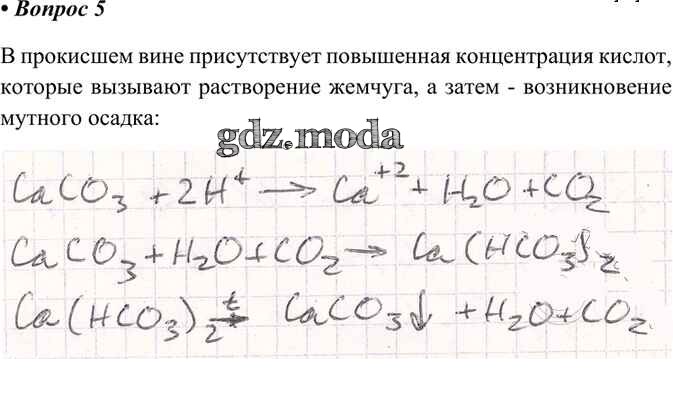 • Вопрос 5
В прокисшем вине присутствует повышенная концентрация кислот,
которые вызывают растворение жемчуга, а затем - возникновение
мутного осадка:
gdz.moda
CaCO₃ + 2H⁺ → Ca⁺² + H₂O + CO₂
CaCO₃ + H₂O + CO₂ → Ca(HCO₃)₂
Ca(HCO₃)₂ →ᵗ CaCO₃↓ + H₂O + CO₂